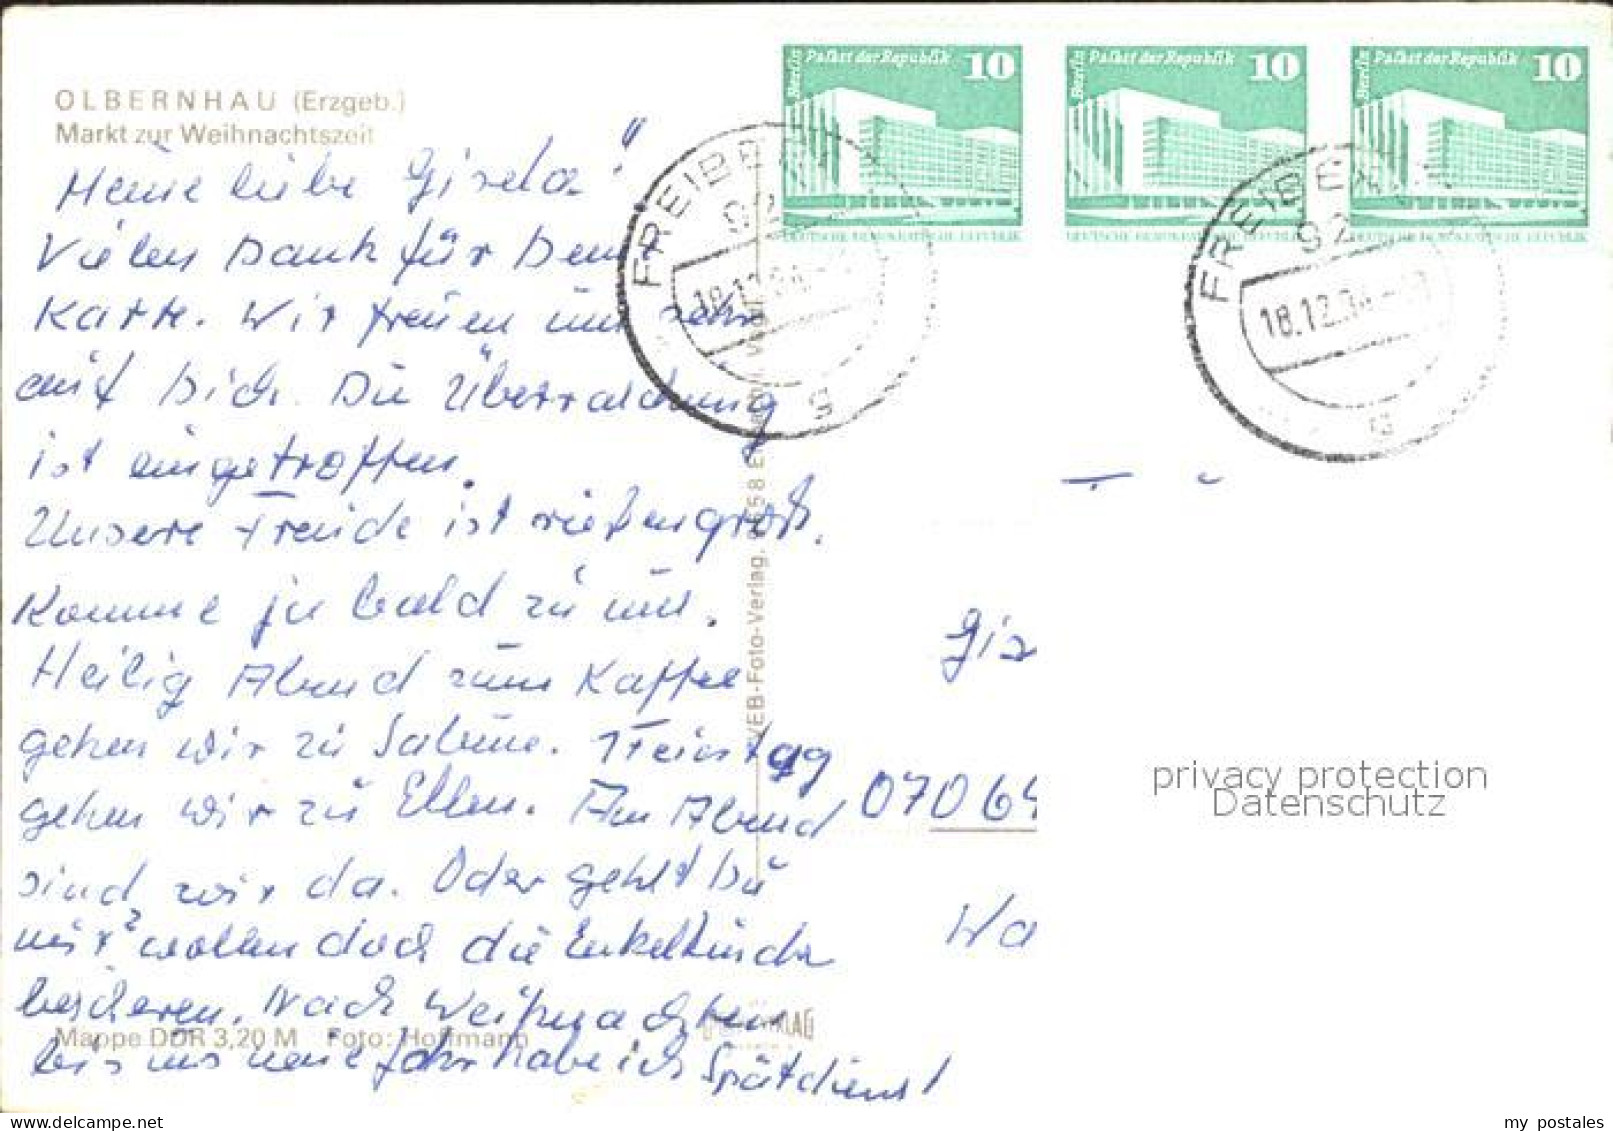 OLBERNHAU (Erzgeb.)
Markt zur Weihnachtszeit
Meine liebe Gisela!
Vielen Dank für Deine
Karte. Wir freuen uns sehr
auf Dich. Die Überraschung
ist eingetroffen.
Unsere Freude ist rießengroß.
Komme ja bald zu uns.
Heilig Abend zum Kaffee
gehen wir zu Sabine. 1 Feiertag
gehen wir zu Ellen. Am Abend
sind wir da. Oder gehst Du
mit? wollen doch die Enkelkinder
bescheren. Nach Weihnachten
bis ins neue Jahr habe ich Spätdienst
Mappe DDR 3,20 M Foto: Hoffmann
VEB-Foto-Verlag,
Berlin Palast der Republik 10
DEUTSCHE DEMOKRATISCHE REPUBLIK
Berlin Palast der Republik 10
DEUTSCHE DEMOKRATISCHE REPUBLIK
Berlin Palast der Republik 10
DEUTSCHE DEMOKRATISCHE REPUBLIK
FREIBE
92
18.12.
g
FREIBE
92
18.12.
Gis
070 64
Wa
privacy protection
Datenschutz
my_postales